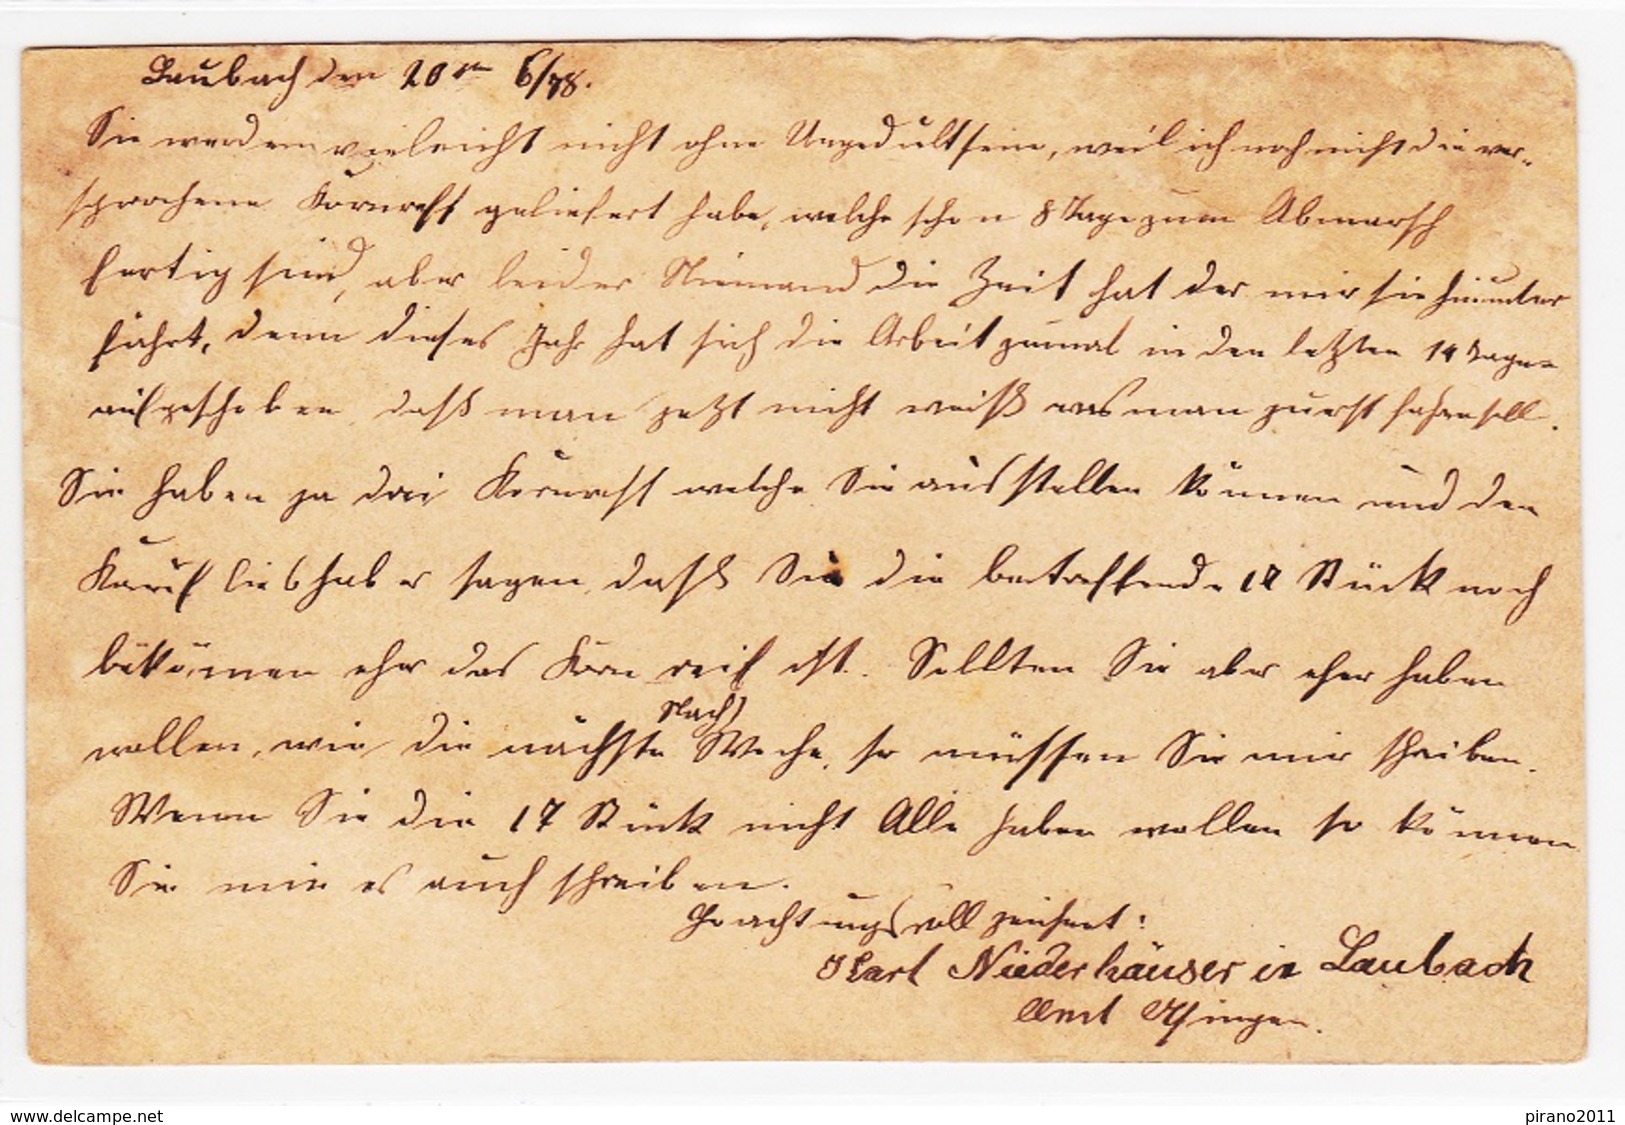 Laubach den 20ten 6/78.
Sie werden vieleicht nicht ohne Ungedult sein, weil ich noch nicht die ver-
sprochene Kornreff geliefert habe, welche schon 8 Tage zum Abmarsch
fertig sind, aber leider Niemand die Zeit hat der mir sie hinunter
fährt, denn dieses Jahr hat sich die Arbeit zumal in den letzten 14 Tagen
aufgeschoben daß man jetzt nicht weiß was man zurst soll.
Sie haben ja drei Kornreff welche Sie ausstellen können und den
Kaufliebhaber sagen, daß Sie die betreffende 17 Stück noch
bekömmen ehr das Korn reif ist. Sollten Sie aber eher haben
wollen, wie die nächste Woche, so müssen Sie mir schreiben.
Nach
Wenn Sie die 17 Stück nicht Alle haben wollen so können
Sie mir es auch schreiben.
Hochachtungsvoll zeichnet:
Karl Niederhäuser in Laubach
Amt Usingen.
www.delcampe.net
pirano2011